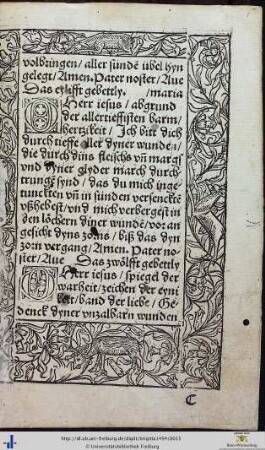 volbringen / aller sündē übel hyn
gelegt / Amen. Pater noster / Aue
Das eylfft gebettly. / maria
O Herr iesus / abgrund
der allertieffisten barm
hertzikeit / Ich bitt dich
durch tieffe aller dyner wunden /
die durch dins fleischs vñ margs
vnd dyner glyder march durch
trungē synd / das du mich inge
tunckten vñ in sünden versenckte
vßhebest / vnd mich verbergest in
den löchern diner wundē / vor an
gesicht dyns zorns / biß das dyn
zorn vergang / Amen. Pater no-
ster / Aue Das zwölfft gebettly
O Herr iesus / spiegel der
warheit / zeichen der eyni
keit / band der liebe / Ge
denck dyner vnzalbarn wunden
C
http://dl.ub.uni-freiburg.de/diglit/brigitta1499/0013
© Universitätsbibliothek Freiburg